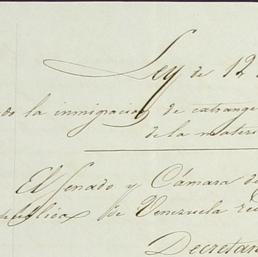 Ley de 12
do la inmigracion de extrange
de la materi
El Senado y Cámara de
pública de Venezuela re
Decretan